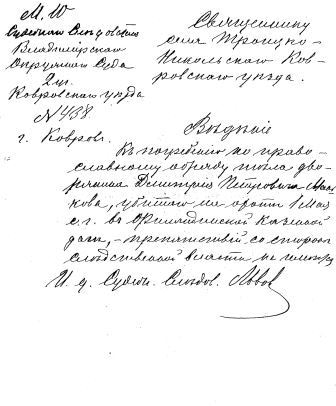 М. Ю.
Судебный Следователь
Владимірскаго
Окружнаго Суда
2 уч.
Ковровскаго уѣзда
№ 438.
г. Ковровъ.
Священнику
села Троицко-
Никольскаго Ков-
ровскаго уѣзда.
Вѣдѣніе
Къ погребенію по право-
славному обряду тѣла дво-
рянина Дмитрія Петровича
кова, убитаго на охотѣ 1 Мая
с. г. въ Казенной
дачѣ, - препятствій со стороны
слѣдственной власти не имѣется
И. д. Судебн. Слѣдов. Львов